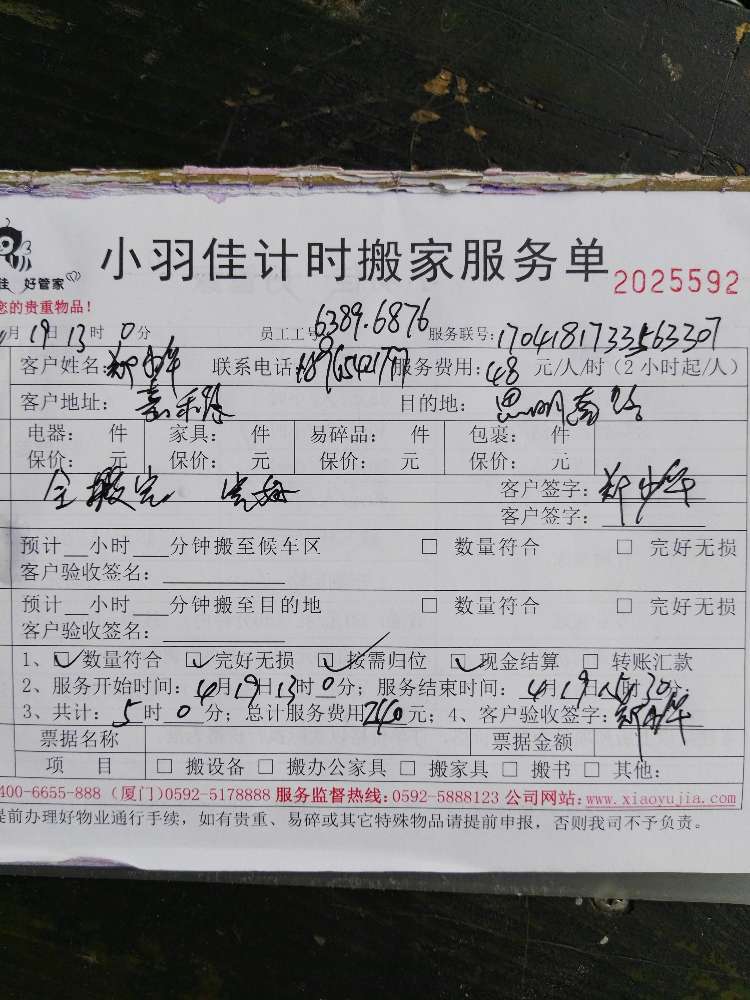 小羽佳计时搬家服务单 2025592
佳 好管家
您的贵重物品!
月19日13时0分 员工工号 6389.6876 服务联号: 1704181733563307
客户姓名: 郑少华 联系电话: 服务费用: 48 元/人/时 (2小时起/人)
客户地址: 嘉禾路 目的地: 思明南路
电器: 件 家具: 件 易碎品: 件 包裹: 件
保价: 元 保价: 元 保价: 元 保价: 元
全搬完 完好 客户签字: 郑少华
客户签字:
预计__小时___分钟搬至候车区 □ 数量符合 □ 完好无损
客户验收签名:
预计__小时___分钟搬至目的地 □ 数量符合 □ 完好无损
客户验收签名:
1、☑数量符合 ☑完好无损 ☑按需归位 ☑现金结算 □ 转账汇款
2、服务开始时间: 4月19日13时0分; 服务结束时间: 4月19日15时30分.
3、共计: 5时0分; 总计服务费用240元; 4、客户验收签字: 郑少华
票据名称 票据金额
项 目 □ 搬设备 □ 搬办公家具 □ 搬家具 □ 搬书 □ 其他:
400-6655-888 (厦门)0592-5178888 服务监督热线:0592-5888123 公司网站:www.xiaoyujia.com
提前办理好物业通行手续, 如有贵重、易碎或其它特殊物品请提前申报, 否则我司不予负责。